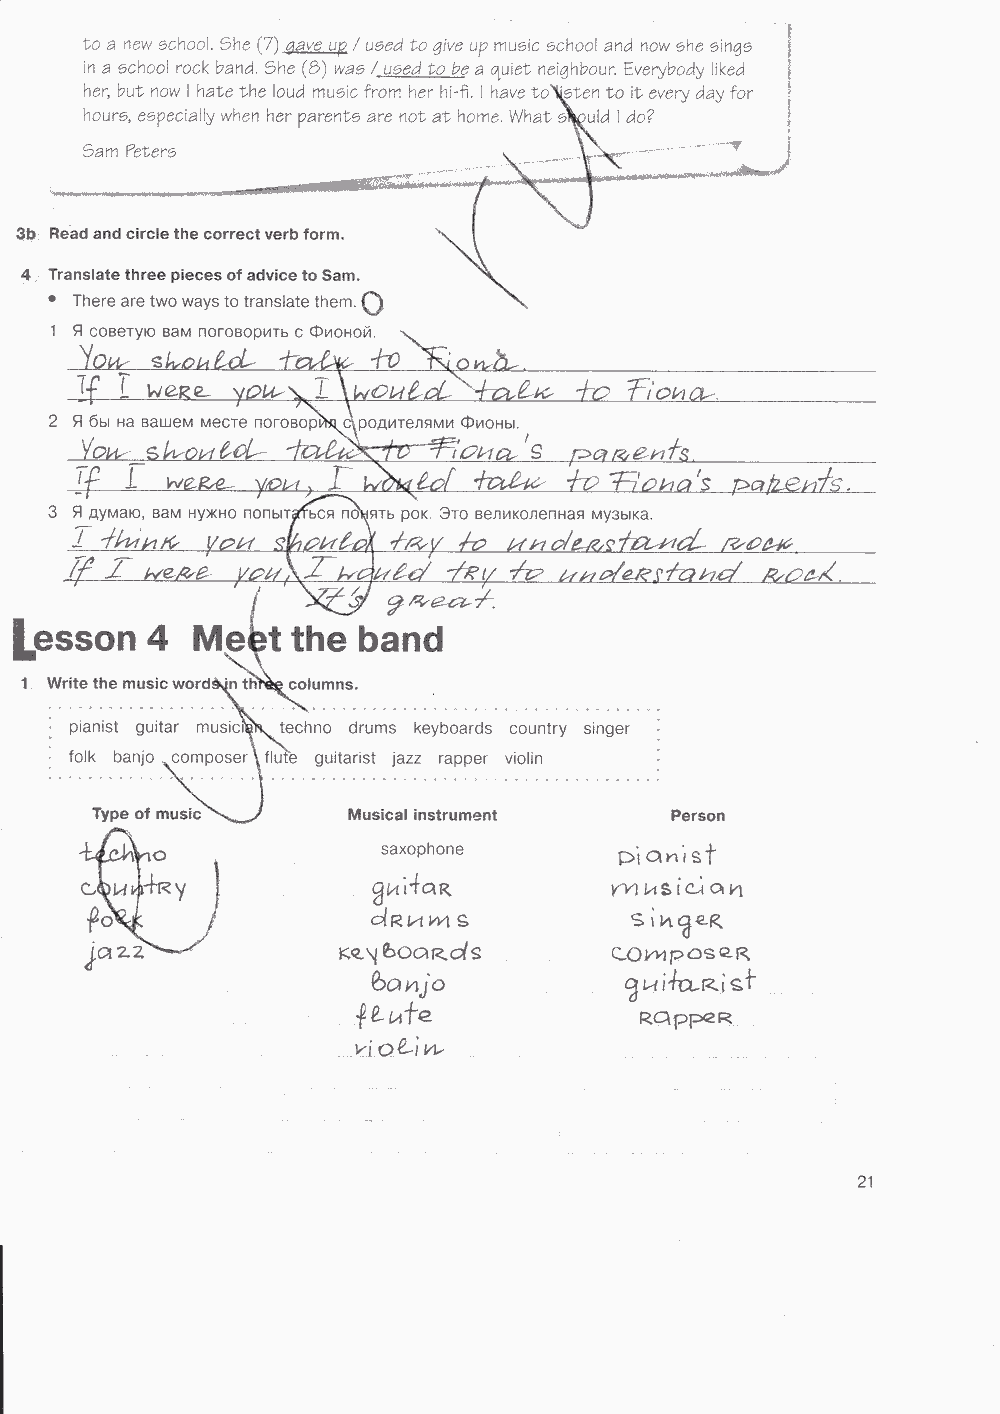 to a new school. She (7) gave up / used to give up music school and now she sings
in a school rock band. She (8) was / used to be a quiet neighbour. Everybody liked
her, but now I hate the loud music from her hi-fi. I have to listen to it every day for
hours, especially when her parents are not at home. What should I do?
Sam Peters
3b Read and circle the correct verb form.
4 Translate three pieces of advice to Sam.
• There are two ways to translate them.
1 Я советую вам поговорить с Фионой.
You should talk to Fiona.
If I were you, I would talk to Fiona.
2 Я бы на вашем месте поговорил с родителями Фионы.
You should talk to Fiona's parents.
If I were you, I would talk to Fiona's parents.
3 Я думаю, вам нужно попытаться понять рок. Это великолепная музыка.
I think you should try to understand rock.
If I were you, I would try to understand rock.
It's great.
Lesson 4 Meet the band
1 Write the music words in three columns.
pianist guitar musician techno drums keyboards country singer
folk banjo composer flute guitarist jazz rapper violin
Type of music Musical instrument Person
techno saxophone pianist
country guitar musician
folk drums singer
jazz keyboards composer
banjo guitarist
flute rapper
violin
21